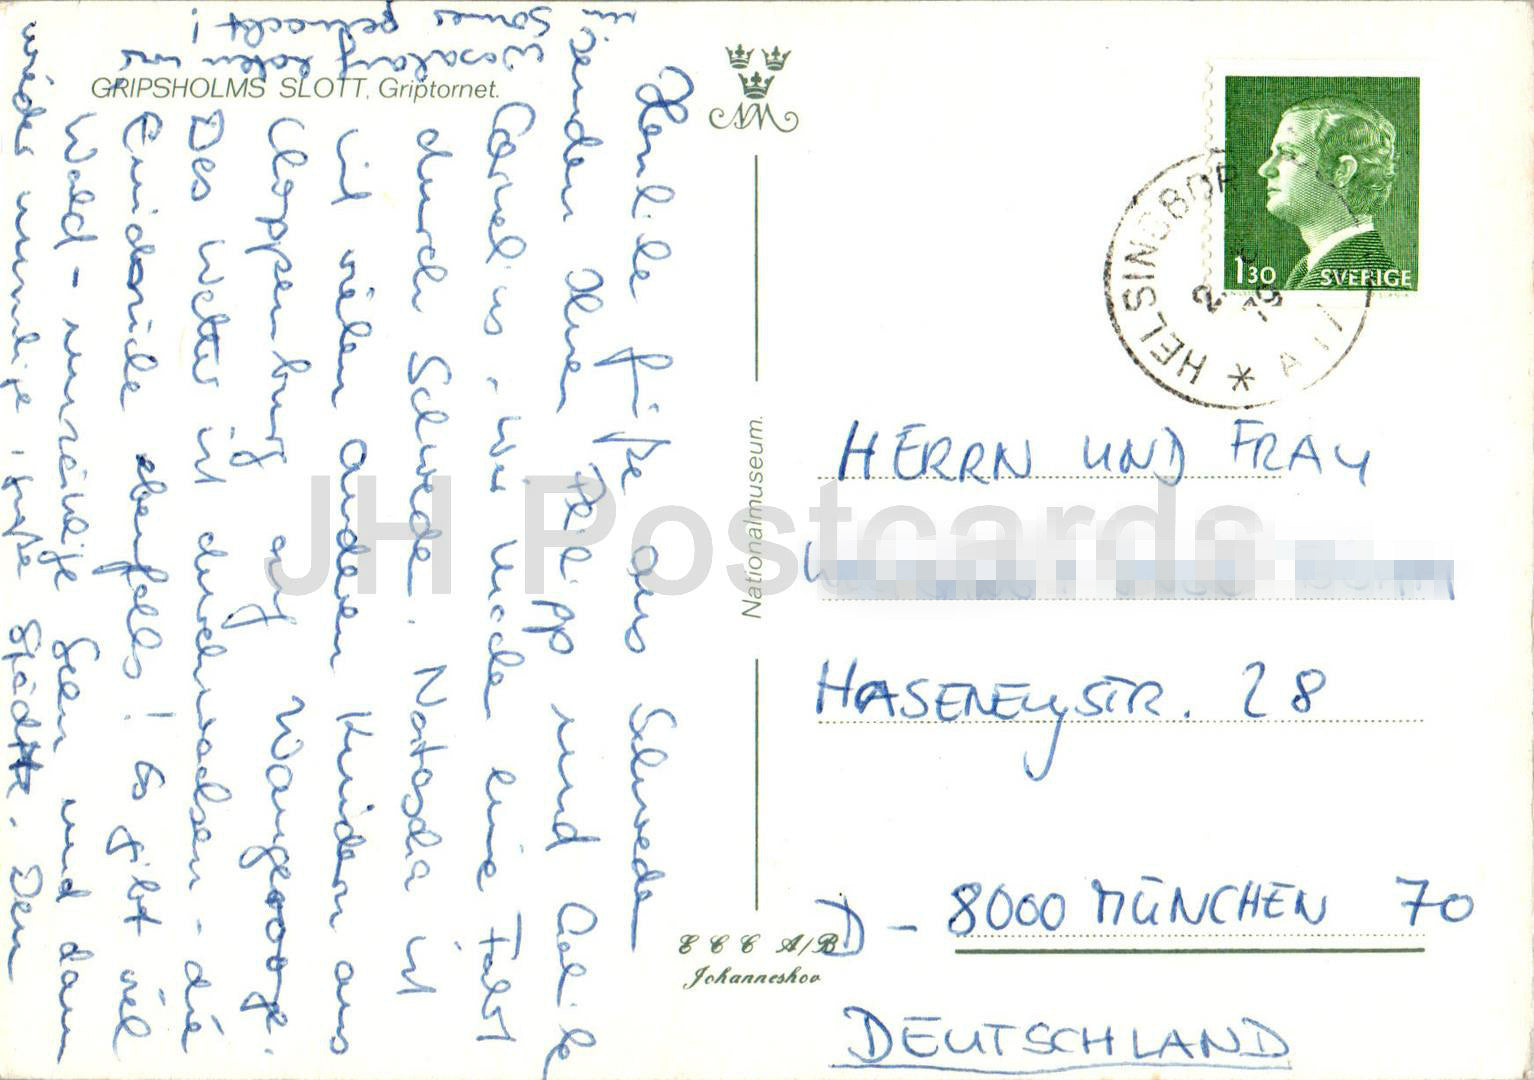 GRIPSHOLMS SLOTT, Griptornet.
Herzliche Grüße aus Schweden
senden Ihnen Philipp und Cäcilie
Cornelius. Wir machen eine Fahrt
durch Schweden. Natascha ist
mit vielen anderen Kindern aus
Cloppenburg auf Wangerooge.
Das Wetter ist durchwachsen - die
Eindrücke ebenfalls! Es gibt viel
Wald - unzählige Seen und dann
wieder unruhige, große Städte. Den
gemacht!
Nationalmuseum.
E C C A/B
Johanneshov
1.30 SVERIGE
HELSINGBORG
79
HERRN UND FRAU
HASENEYSTR. 28
D - 8000 MÜNCHEN 70
DEUTSCHLAND
JH Postcards